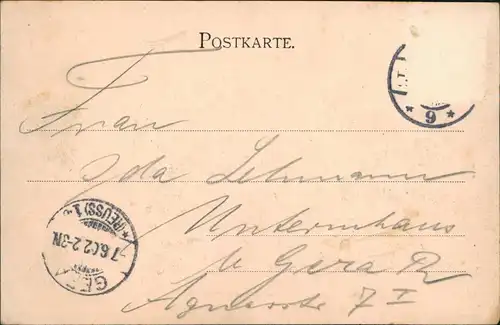 POSTKARTE.
Frau
Ida Lehmann
Untermhaus
b Gera R
Agnesstr 7 I
* 9 *
(REUSS) 1
-7.6.02.2-3N
GE